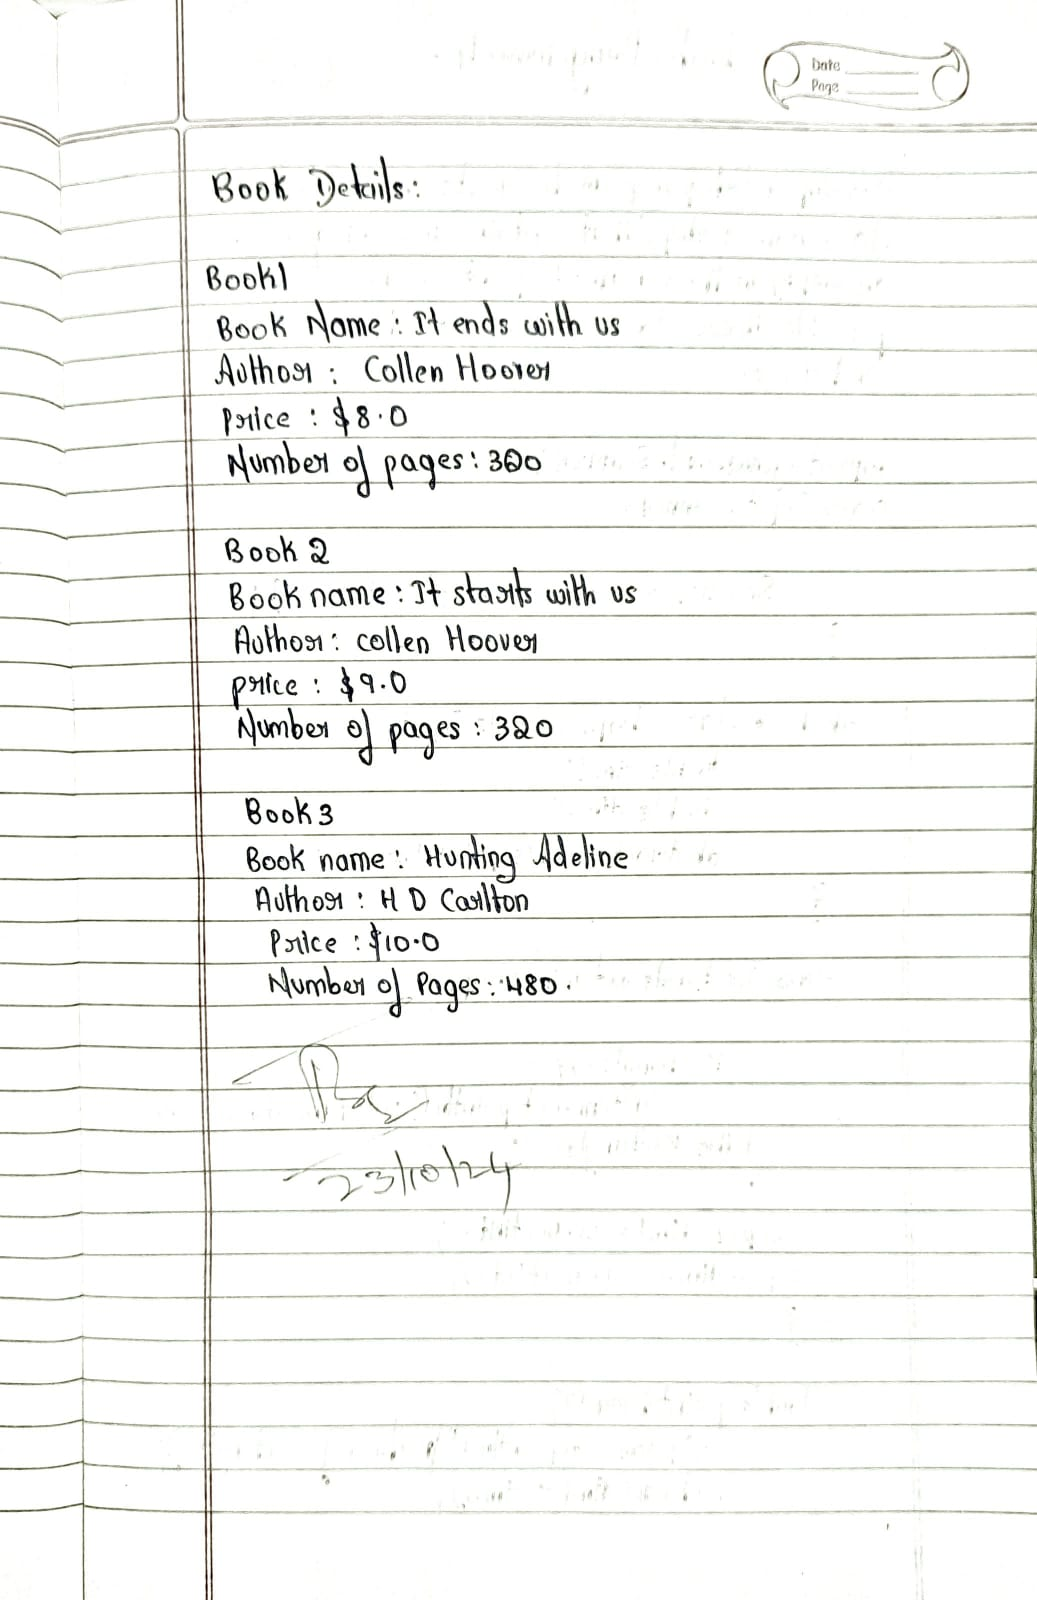 Date
Page
Book Details:
Book1
Book Name : It ends with us
Author : Collen Hoover
Price : $8.0
Number of pages : 300
Book 2
Book name : It starts with us
Author : collen Hoover
price : $9.0
Number of pages : 320
Book 3
Book name : Hunting Adeline
Author : H D Carlton
Price : $10.0
Number of Pages : 480.
23/10/24